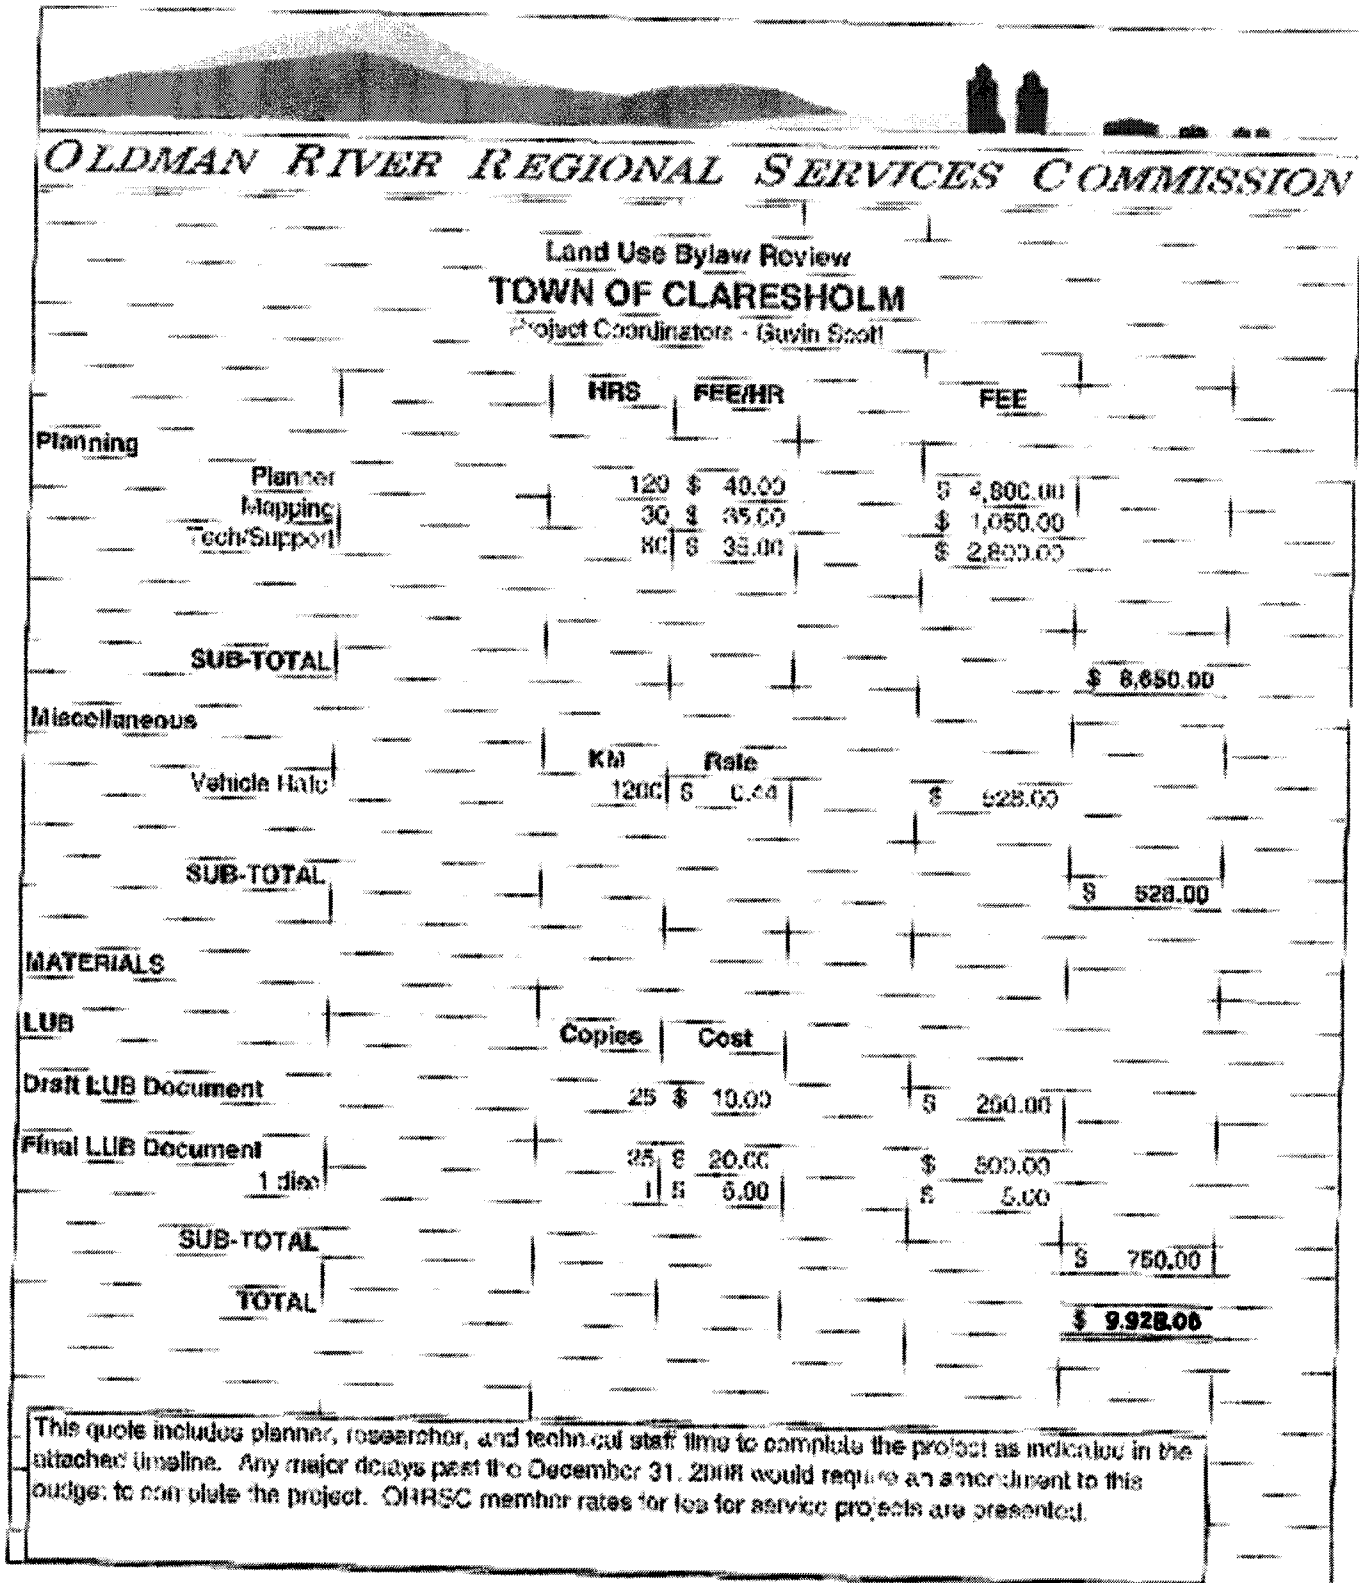 OLDMAN RIVER REGIONAL SERVICES COMMISSION
Land Use Bylaw Review
TOWN OF CLARESHOLM
Project Coordinators - Gavin Scott
HRS FEE/HR FEE
Planning
Planner 120 $ 40.00 $ 4,800.00
Mapping 30 $ 35.00 $ 1,050.00
Tech/Support 80 $ 35.00 $ 2,800.00
SUB-TOTAL $ 8,650.00
Miscellaneous
KM Rate
Vehicle Rate 1200 $ 0.44 $ 528.00
SUB-TOTAL $ 528.00
MATERIALS
LUB Copies Cost
Draft LUB Document 25 $ 10.00 $ 250.00
Final LUB Document 25 $ 20.00 $ 500.00
1 disc 1 $ 5.00 $ 5.00
SUB-TOTAL $ 750.00
TOTAL $ 9,928.00
This quote includes planner, researcher, and technical staff time to complete the project as indicated in the
attached timeline. Any major delays past the December 31, 2008 would require an amendment to this
budget to complete the project. ORRSC member rates for fee for service projects are presented.